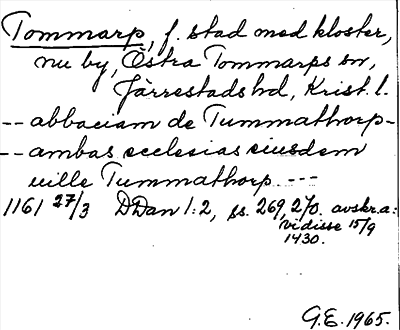 Tommarp, f. stad med kloster,
nu by, Östra Tommarps sn,
Järrestads hd, Krist. l.
-- abbaciam de Tummathorp -
-- ambas ecclesias eiusdem
uille Tummathorp ---
1161 27/3 DDan 1:2, ss. 269, 270. avskr. a:
vidisse 15/9
1430.
G.E. 1965.